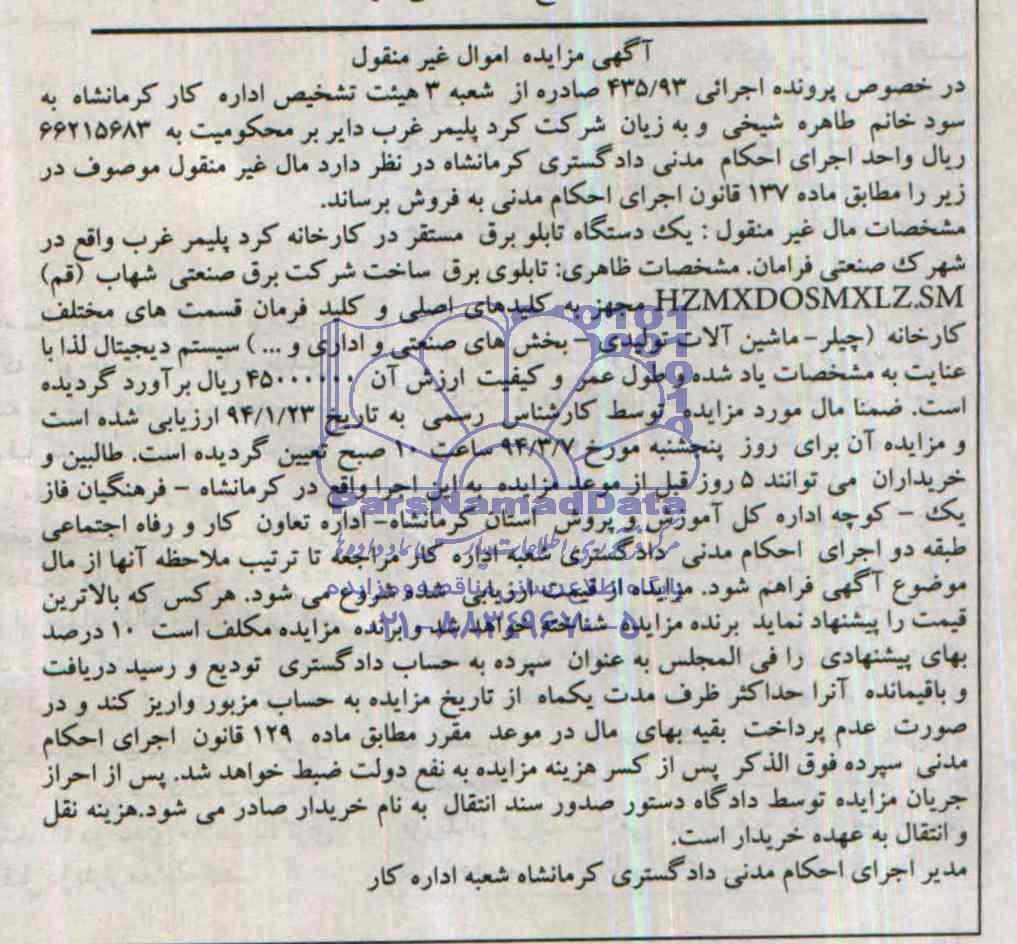 آگهی مزایده اموال غیر منقول
در خصوص پرونده اجرائی ۴۳۵/۹۳ صادره از شعبه ۳ هیئت تشخیص اداره کار کرمانشاه به
سود خانم طاهره شیخی و به زیان شرکت کرد پلیمر غرب دایر بر محکومیت به ۶۶۲۱۵۶۸۳
ریال واحد اجرای احکام مدنی دادگستری کرمانشاه در نظر دارد مال غیر منقول موصوف در
زیر را مطابق ماده ۱۳۷ قانون اجرای احکام مدنی به فروش برساند.
مشخصات مال غیر منقول : یک دستگاه تابلو برق مستقر در کارخانه کرد پلیمر غرب واقع در
شهرک صنعتی فرامان. مشخصات ظاهری: تابلوی برق ساخت شرکت برق صنعتی شهاب (قم)
HZMXDOSMXLZ.SM مجهز به کلیدهای اصلی و کلید فرمان قسمت های مختلف
کارخانه (چیلر-ماشین آلات تولیدی – بخش های صنعتی و اداری و ... ) سیستم دیجیتال لذا با
عنایت به مشخصات یاد شده و طول عمر و کیفیت ارزش آن ۴۵۰۰۰۰۰۰ ریال برآورد گردیده
است. ضمنا مال مورد مزایده توسط کارشناس رسمی به تاریخ ۹۴/۱/۲۳ ارزیابی شده است
و مزایده آن برای روز پنجشنبه مورخ ۹۴/۳/۷ ساعت ۱۰ صبح تعیین گردیده است. طالبین و
خریداران می توانند ۵ روز قبل از موعد مزایده به این اجرا واقع در کرمانشاه – فرهنگیان فاز
یک – کوچه اداره کل آموزش و پرورش استان کرمانشاه- اداره تعاون کار و رفاه اجتماعی
طبقه دو اجرای احکام مدنی دادگستری شعبه اداره کار مراجعه تا ترتیب ملاحظه آنها از مال
موضوع آگهی فراهم شود. مزایده از قیمت ارزیابی شده شروع می شود. هرکس که بالاترین
قیمت را پیشنهاد نماید برنده مزایده شناخته خواهد شد و برنده مزایده مکلف است ۱۰ درصد
بهای پیشنهادی را فی المجلس به عنوان سپرده به حساب دادگستری تودیع و رسید دریافت
و باقیمانده آنرا حداکثر ظرف مدت یکماه از تاریخ مزایده به حساب مزبور واریز کند و در
صورت عدم پرداخت بقیه بهای مال در موعد مقرر مطابق ماده ۱۲۹ قانون اجرای احکام
مدنی سپرده فوق الذکر پس از کسر هزینه مزایده به نفع دولت ضبط خواهد شد. پس از احراز
جریان مزایده توسط دادگاه دستور صدور سند انتقال به نام خریدار صادر می شود.هزینه نقل
و انتقال به عهده خریدار است.
مدیر اجرای احکام مدنی دادگستری کرمانشاه شعبه اداره کار
ParsNamadData
پایگاه اطلاع رسانی مناقصه و مزایده
۰۲۱-۸۸۳۴۹۶۷۰-۵